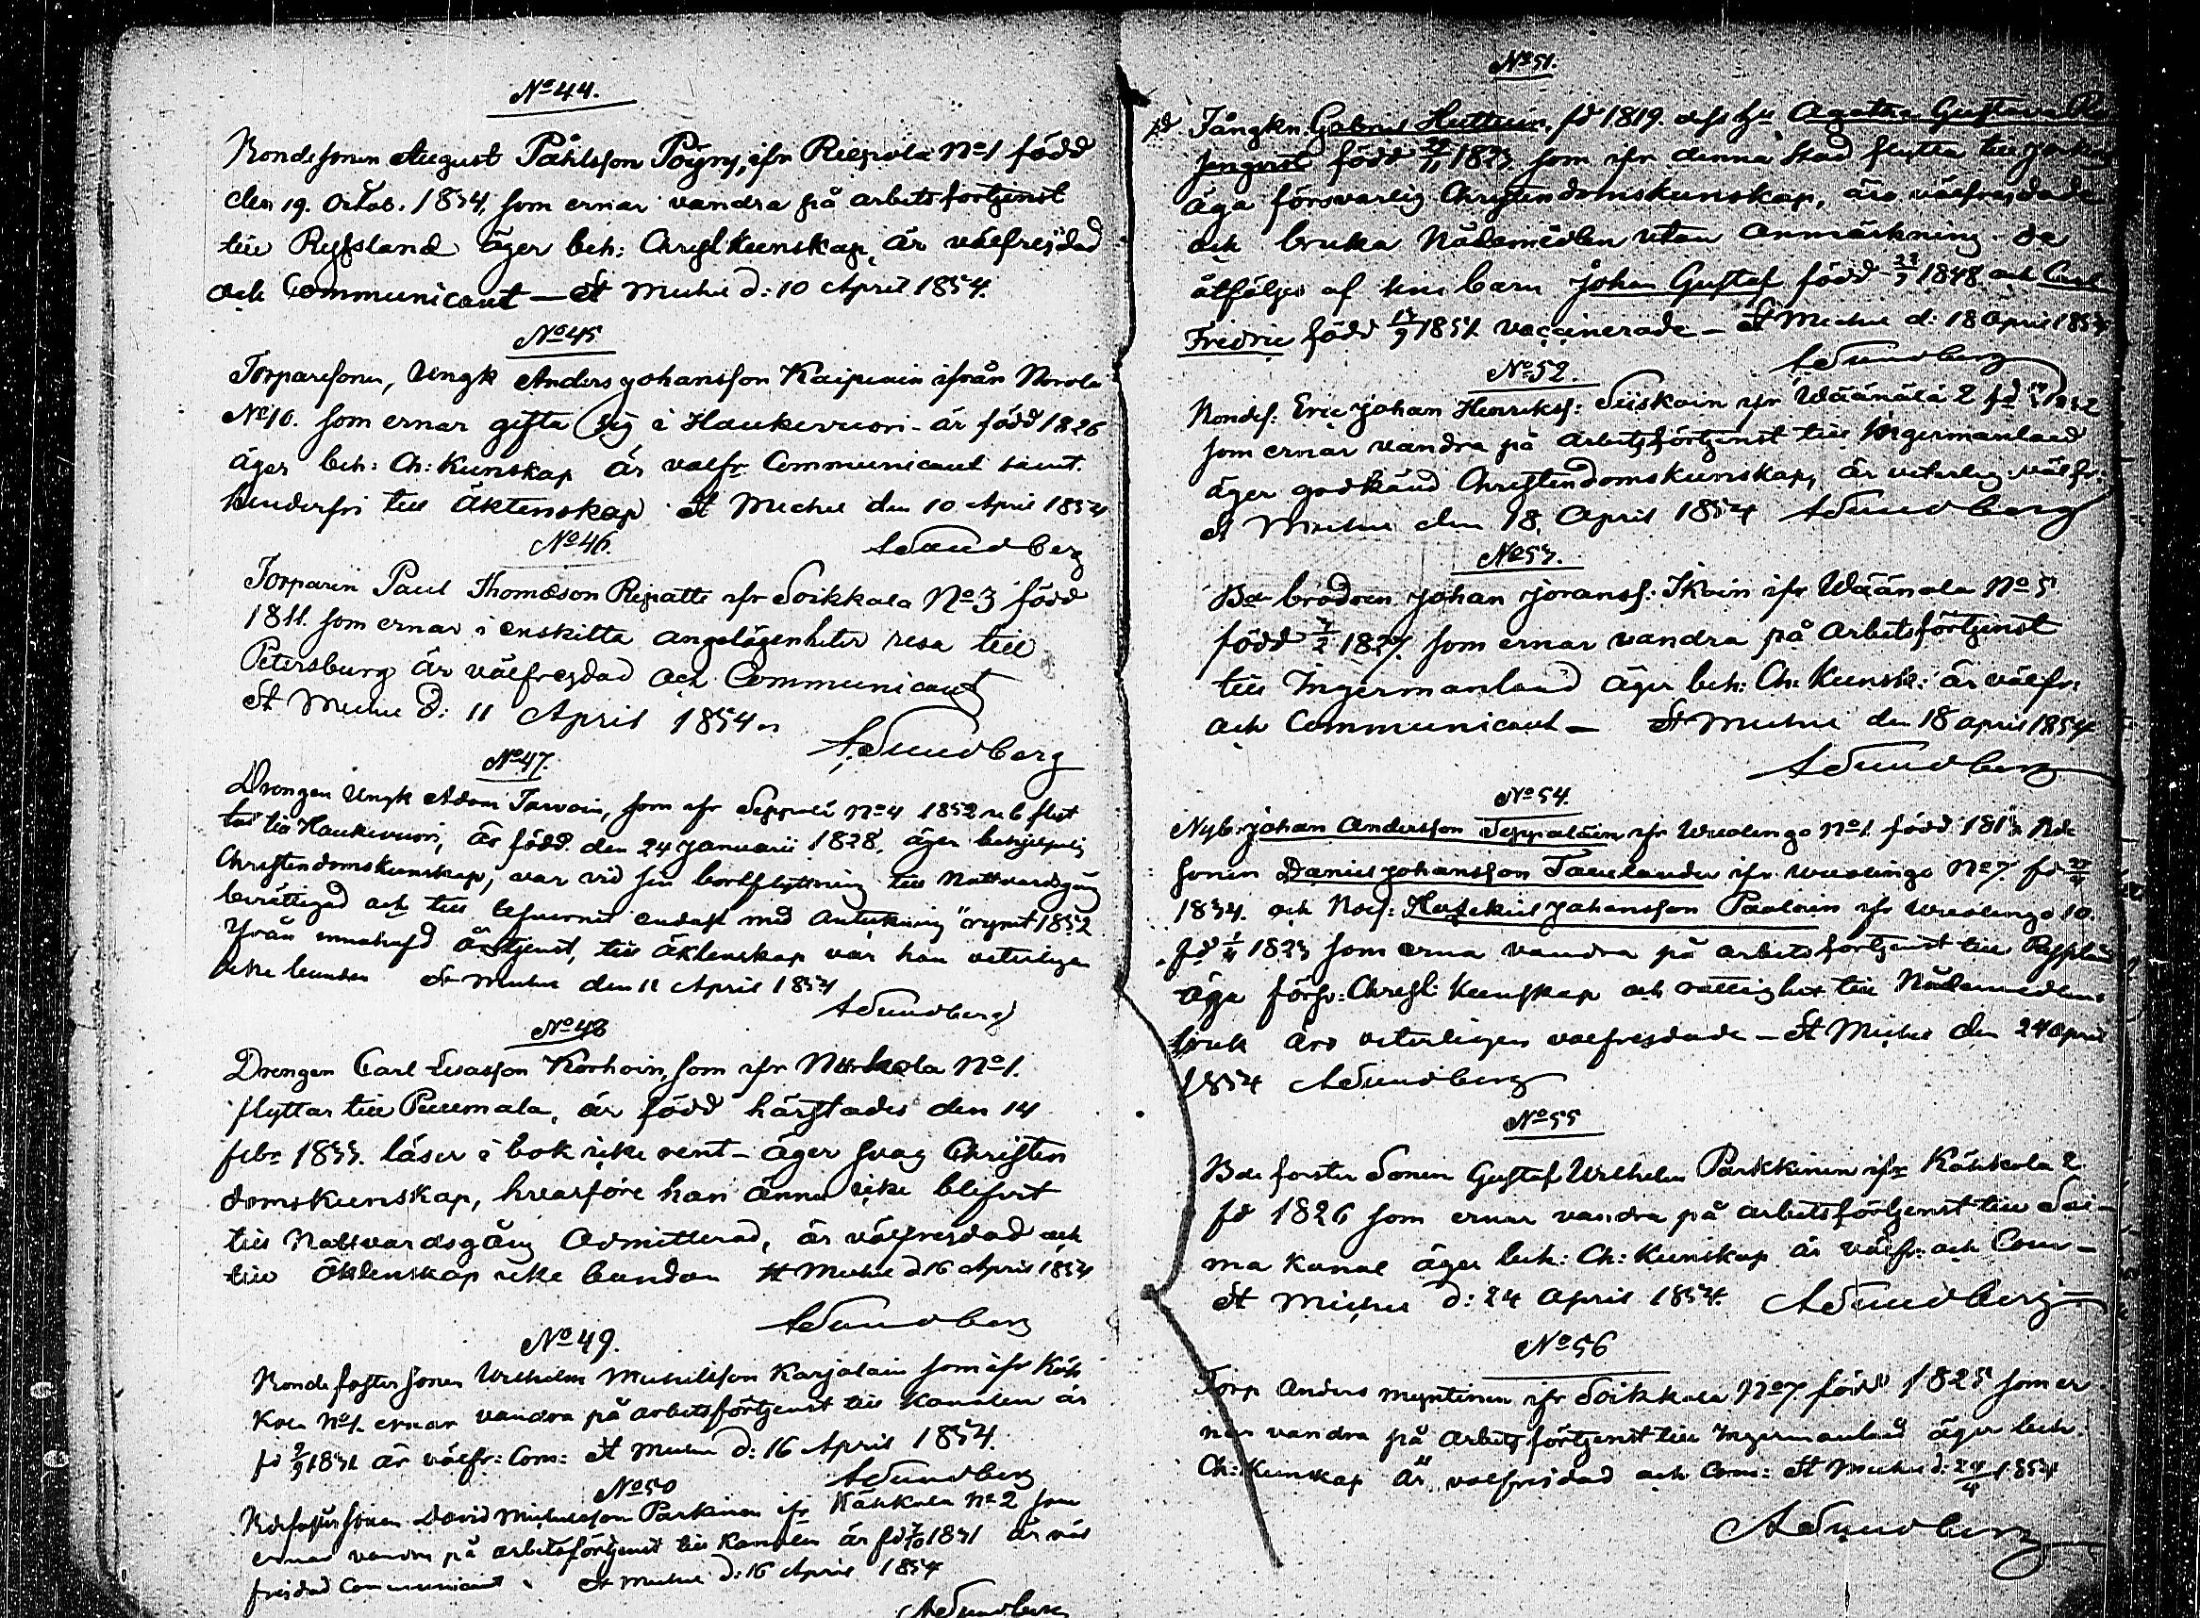 No 44.
Bondesonen August Påhlsson Pöyry, ifr Riepola No 1 född
den 19. Octob. 1834, som ernar vandra på arbetsförtjenst
till Ryssland äger beh: Christ kunskap, är välfrejdad
och Communicant — St Michel d: 10 April 1854.
No 45
Torparesonen, Ungk Anders Johansson Kaipiain ifrån Norola
No 10. som ernar gifta sig i Haukivuori - är född 1826
äger beh: Ch: Kunskap är välfr Communicant samt
hinderfri till äktenskap St Michel den 10 April 1854
ASundberg
No 46.
Torparen Paul Thomasson Repatti ifr Soikkala No 3 född
1811. som ernar i enskilta angelägenheter resa till
Petersburg är välfrejdad och Communicant
St Michel d: 11 April 1854
ASundberg
No 47.
Drengen Ungk Adam Tarvain, som ifr No 4 1852 flyt
tat till Haukivuori, är född den 24 Januarii 1828, äger
Christendomskunskap, var vid sin bortflyttning till Nattvardsgång
berättigad och till lefvernet endast med Anteckning "rymt 1852
ifrån tjenst, till äktenskap var han veterligen
icke bunden St Michel den 11 April 1854
ASundberg
No 48
Drengen Carl Esaiasson Korhoin, som ifr No 1.
flyttar till Puumala, är född härstädes den 14
febr 1833. läser i bok icke rent - äger svag Christen
domskunskap, hvarföre han ännu icke blifvit
till Nattvardsgång Admitterad, är välfrejdad och
till äktenskap icke bunden St Michel d 16 April 1854
ASundberg
No 49.
Bonde Wilhelm Michelsson Karjalain som ifr Käh
kola No 1. ernar vandra på arbetsförtjenst till Kanalen är
fd 1831 är välfr: Com: St Michel d: 16 April 1854.
ASundberg
No 50
David Michelsson Parkinen ifr Kähkola No 2 som
ernar vandra på arbetsförtjenst till Kanalen är fd 1831 är väl
frejdad Communicant St Michel d: 16 April 1854
ASundberg
No 51.
Fångkn. Gabriel Huttuin, fd 1819. Agatha Gustava
född 1823 som ifr denna stad flytta till
äga försvarlig Christendomskunskap, äro välfrejdade
och bruka Nådemedlen utan anmärkning. De
åtföljes af sine barn Johan Gustaf född 1848 och Carl
Fredric född 1851 vaccinerade — St Michel d: 18 April 1854
ASundberg
No 52.
Bondes. Eric Johan Henrikss: Siiskoin ifr Wäänälä 2 fd
som ernar vandra på arbetsförtjenst till Ingermanland
äger godkänd Christendomskunskap, är veterlig. välfr:
St Michel den 18 April 1854 ASundberg
No 53.
Bde brodren Johan Joranss: Ikoin ifr Wäänälä No 5
född 1827. som ernar vandra på Arbetsförtjenst
till Ingermanland äger beh: Ch: Kunsk: är välfr:
och Communicant — St Michel den 18 April 1854
ASundberg
No 54.
Nyb: Johan Andersson Seppäläin ifr Wuolingo No 1. född Bde
sonen Daniel Johansson ifr Wuolingo No 7. fd
1834. och Johansson Paolain ifr Wuolingo 10.
fd 1823 som erna vandra på arbetsförtjenst till Ryssland
äga förs: Christ: kunskap och rättighet till Nådemedlens
bruk äro veterligen välfrejdade — St Michel den 24 April
1854 ASundberg
No 55
Bde foster Sonen Gustaf Wilhelm Parkkinen ifr Kähkola 2
fd 1826 som ernar vandra på arbetsförtjenst till Sai-
ma Kanal äger beh: Ch: Kunskap är välfr: och Com—
St Michel d: 24 April 1854. ASundberg
No 56
Torp Anders Myntinen ifr Soikkala No 7 född 1825 som er
nar vandra på Arbetsförtjenst till Ingermanland äger beh:
Ch: Kunskap är välfrejdad och Com: St Michel d: 24/4 1854
ASundberg